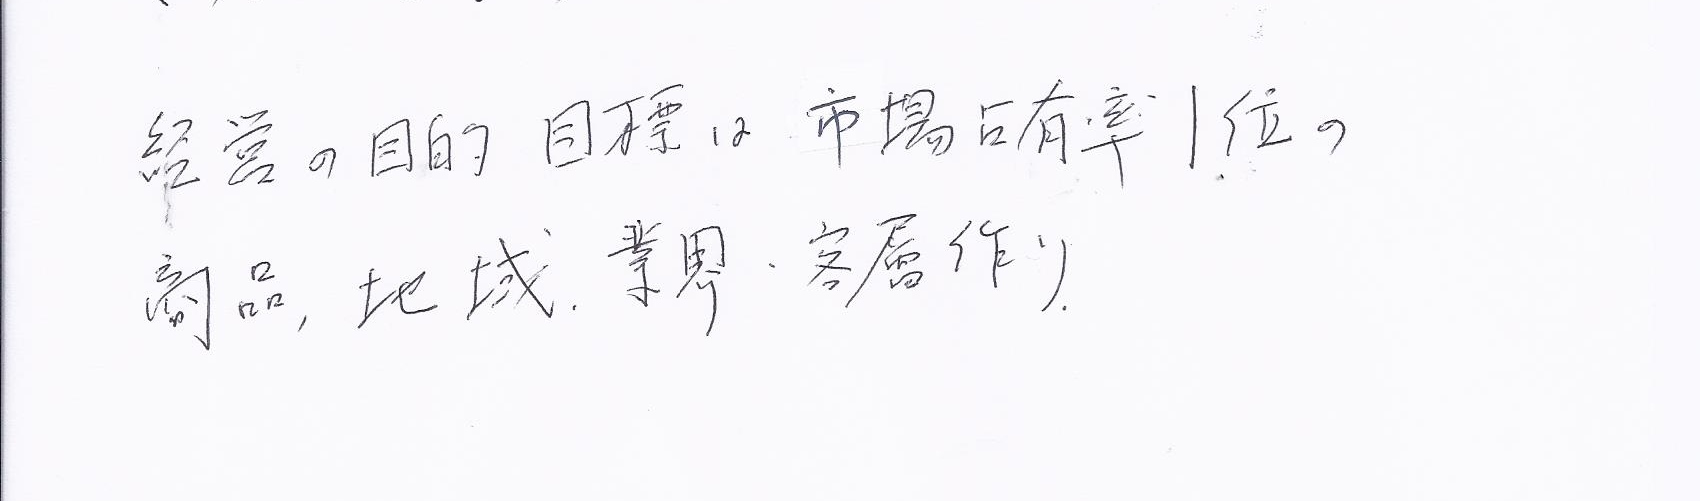 経営の目的 目標は 市場占有率1位の
商品, 地域. 業界. 客層作り.